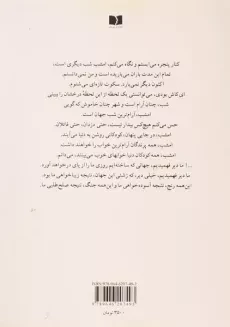 کنار پنجره می‌ایستم و نگاه می‌کنم، امشب شب دیگری است،
تمام این مدت باران می‌باریده است و من نمی‌دانستم.
اکنون دیگر نمی‌بارد. سکوت تازه‌ای می‌شنوم
ای‌کاش بودی، می‌توانستی یک لحظه از این لحظهٔ درخشان را ببینی
شب، چنان آرام است و شهر چنان خاموش که گویی
امشب، آرام‌ترین شب جهان است
حس می‌کنم هیچ‌کس بیدار نیست، حتی دزدان، حتی قاتلان
امشب، در جایی پنهان، کودکانی روشن به دنیا می‌آیند.
امشب، همه پرندگان آرام‌ترین خواب را خواهند داشت
امشب، همه کودکان دنیا خوابهای خوب می‌بینند، می‌دانم
... ما دیر فهمیدیم، جهانی که ساخته‌ایم روزی ما را از پای درخواهد آورد
ما دیر فهمیدیم، خیلی دیر، که زشتی این جهان، نتیجه زیباخواهی ما بود.
این‌همه رنج، نتیجه آسوده‌خواهی ما و این‌همه جنگ، نتیجه صلح‌طلبی ما.
۳۵۰۰ تومان